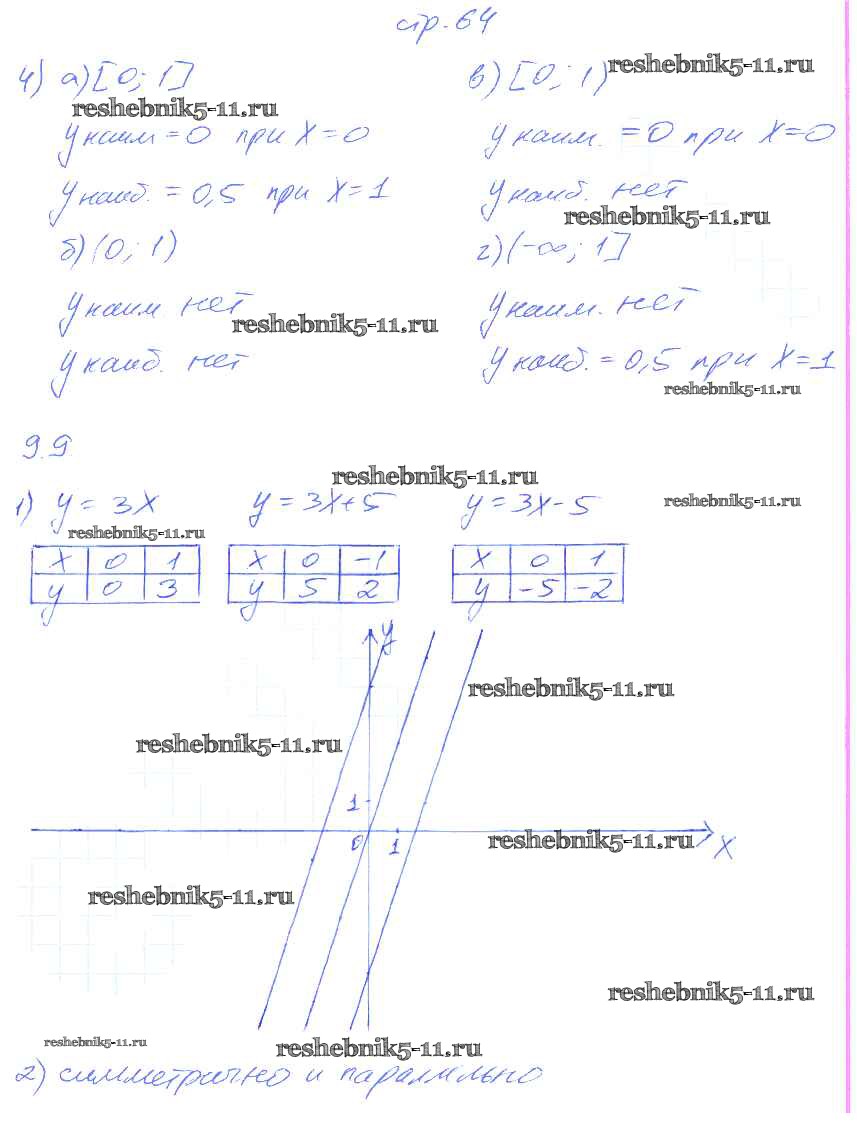 стр. 64
4) а) [0; 1]
reshebnik5-11.ru
y наим = 0 при x = 0
y наиб. = 0,5 при x = 1
б) (0; 1)
y наим нет
reshebnik5-11.ru
y наиб. нет
в) [0; 1)
reshebnik5-11.ru
y наим. = 0 при x = 0
y наиб. нет
reshebnik5-11.ru
г) (-∞; 1]
y наим. нет
y наиб. = 0,5 при x = 1
reshebnik5-11.ru
9.9
reshebnik5-11.ru
1) y = 3x y = 3x+5 y = 3x-5
reshebnik5-11.ru
reshebnik5-11.ru
x 0 1 x 0 -1 x 0 1
y 0 3 y 5 2 y -5 -2
y
reshebnik5-11.ru
reshebnik5-11.ru
1
0 1 x
reshebnik5-11.ru
reshebnik5-11.ru
reshebnik5-11.ru
reshebnik5-11.ru
reshebnik5-11.ru
2) симметрично и паралельно